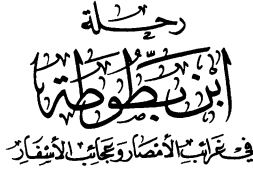 رحلة
ابن بطوطة
في غرائب الأمصار وعجائب الأسفار